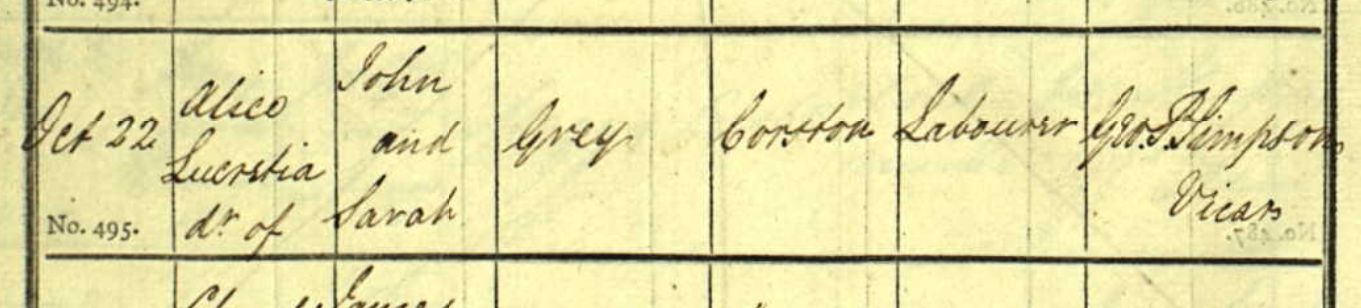 No. 494.
Oct 22
No. 495.
Alice
Lucretia
dr. of
John
and
Sarah
Grey
Corston
Labourer
Geo. P. Simpson,
Vicar
James